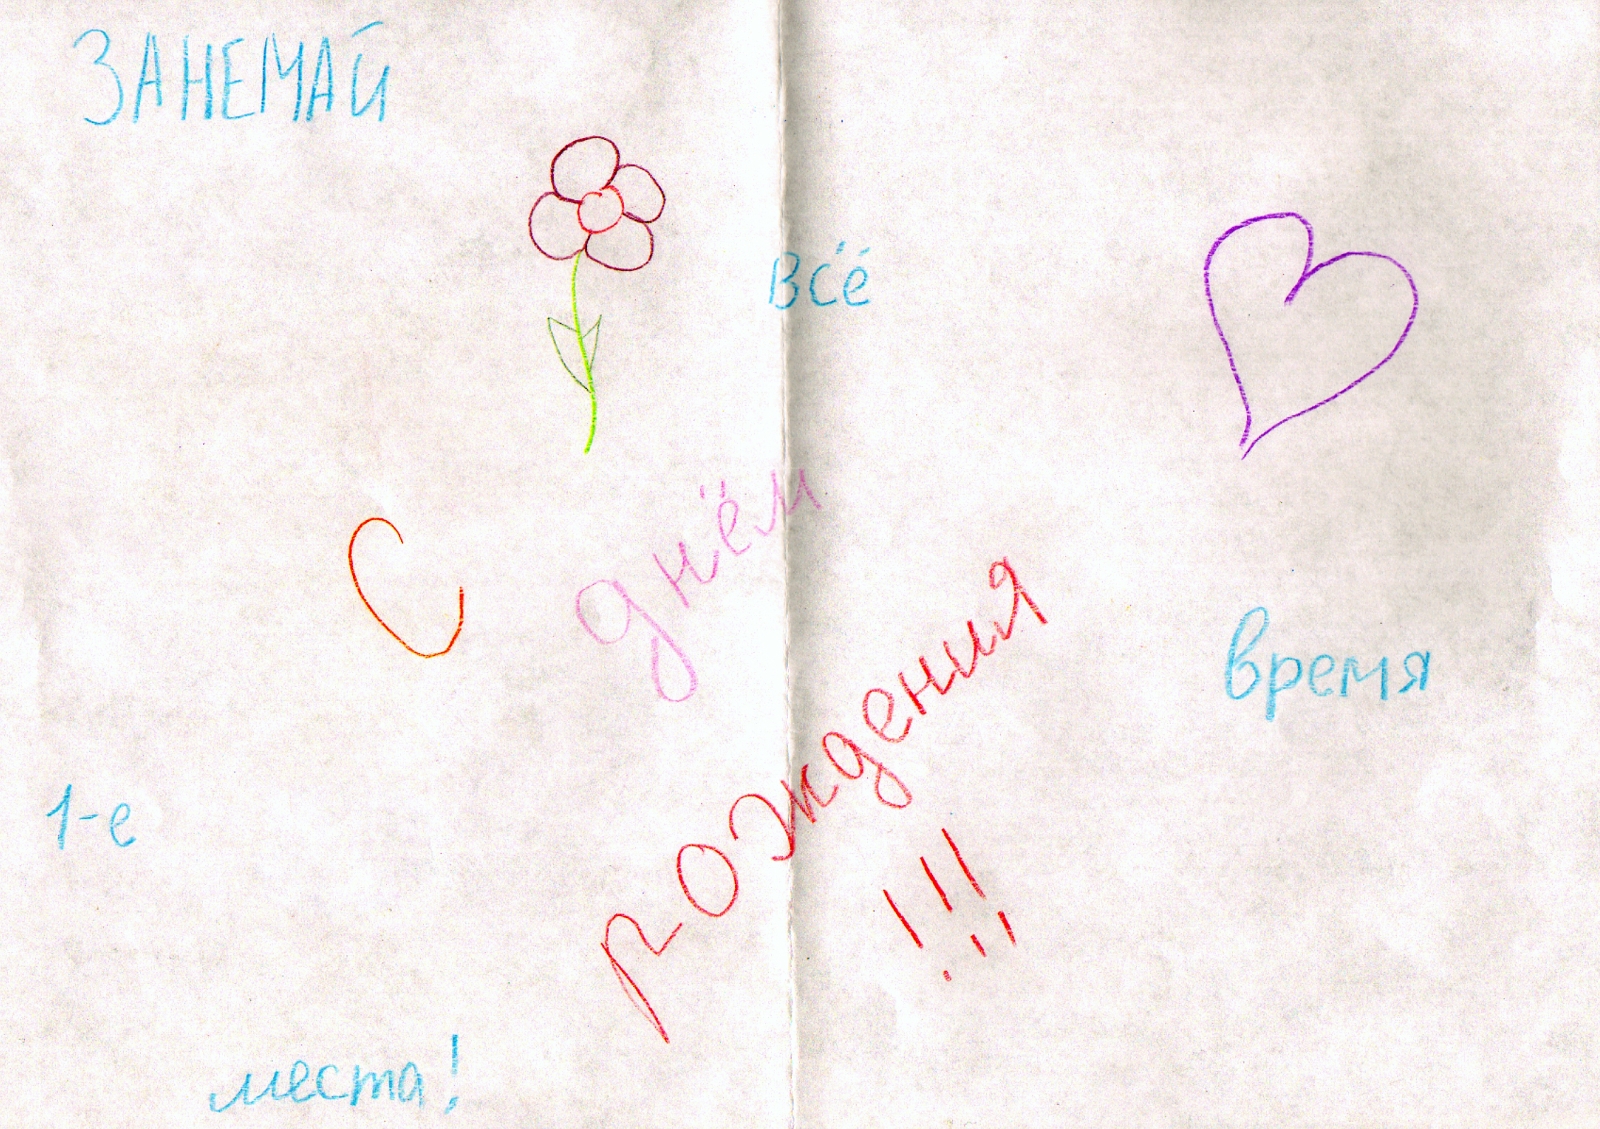 ЗАНЕМАЙ
всё
время
1-е
места!
С
днём
рождения
!!!